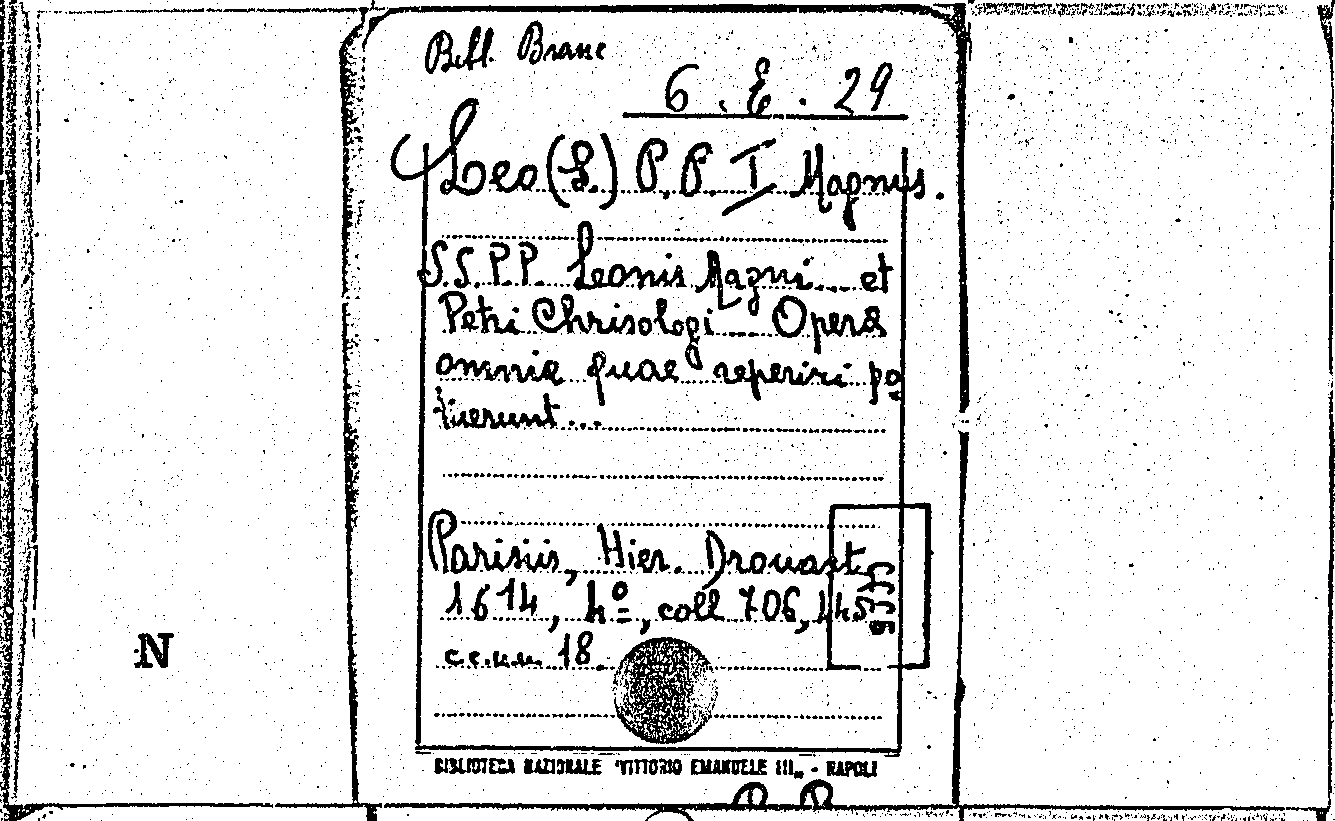 Bibl. Branc
6. E. 29
Leo (S.) P.P. I Magnus.
S.S. P.P. Leonis Magni... et
Petri Chrisologi... Opera
omnia quae reperiri po
tuerunt...
Parisiis, Hier. Drouart
1614, 4º, coll 706, 445
cc.nn. 18.
N
BIBLIOTECA NAZIONALE "VITTORIO EMANUELE III" - NAPOLI